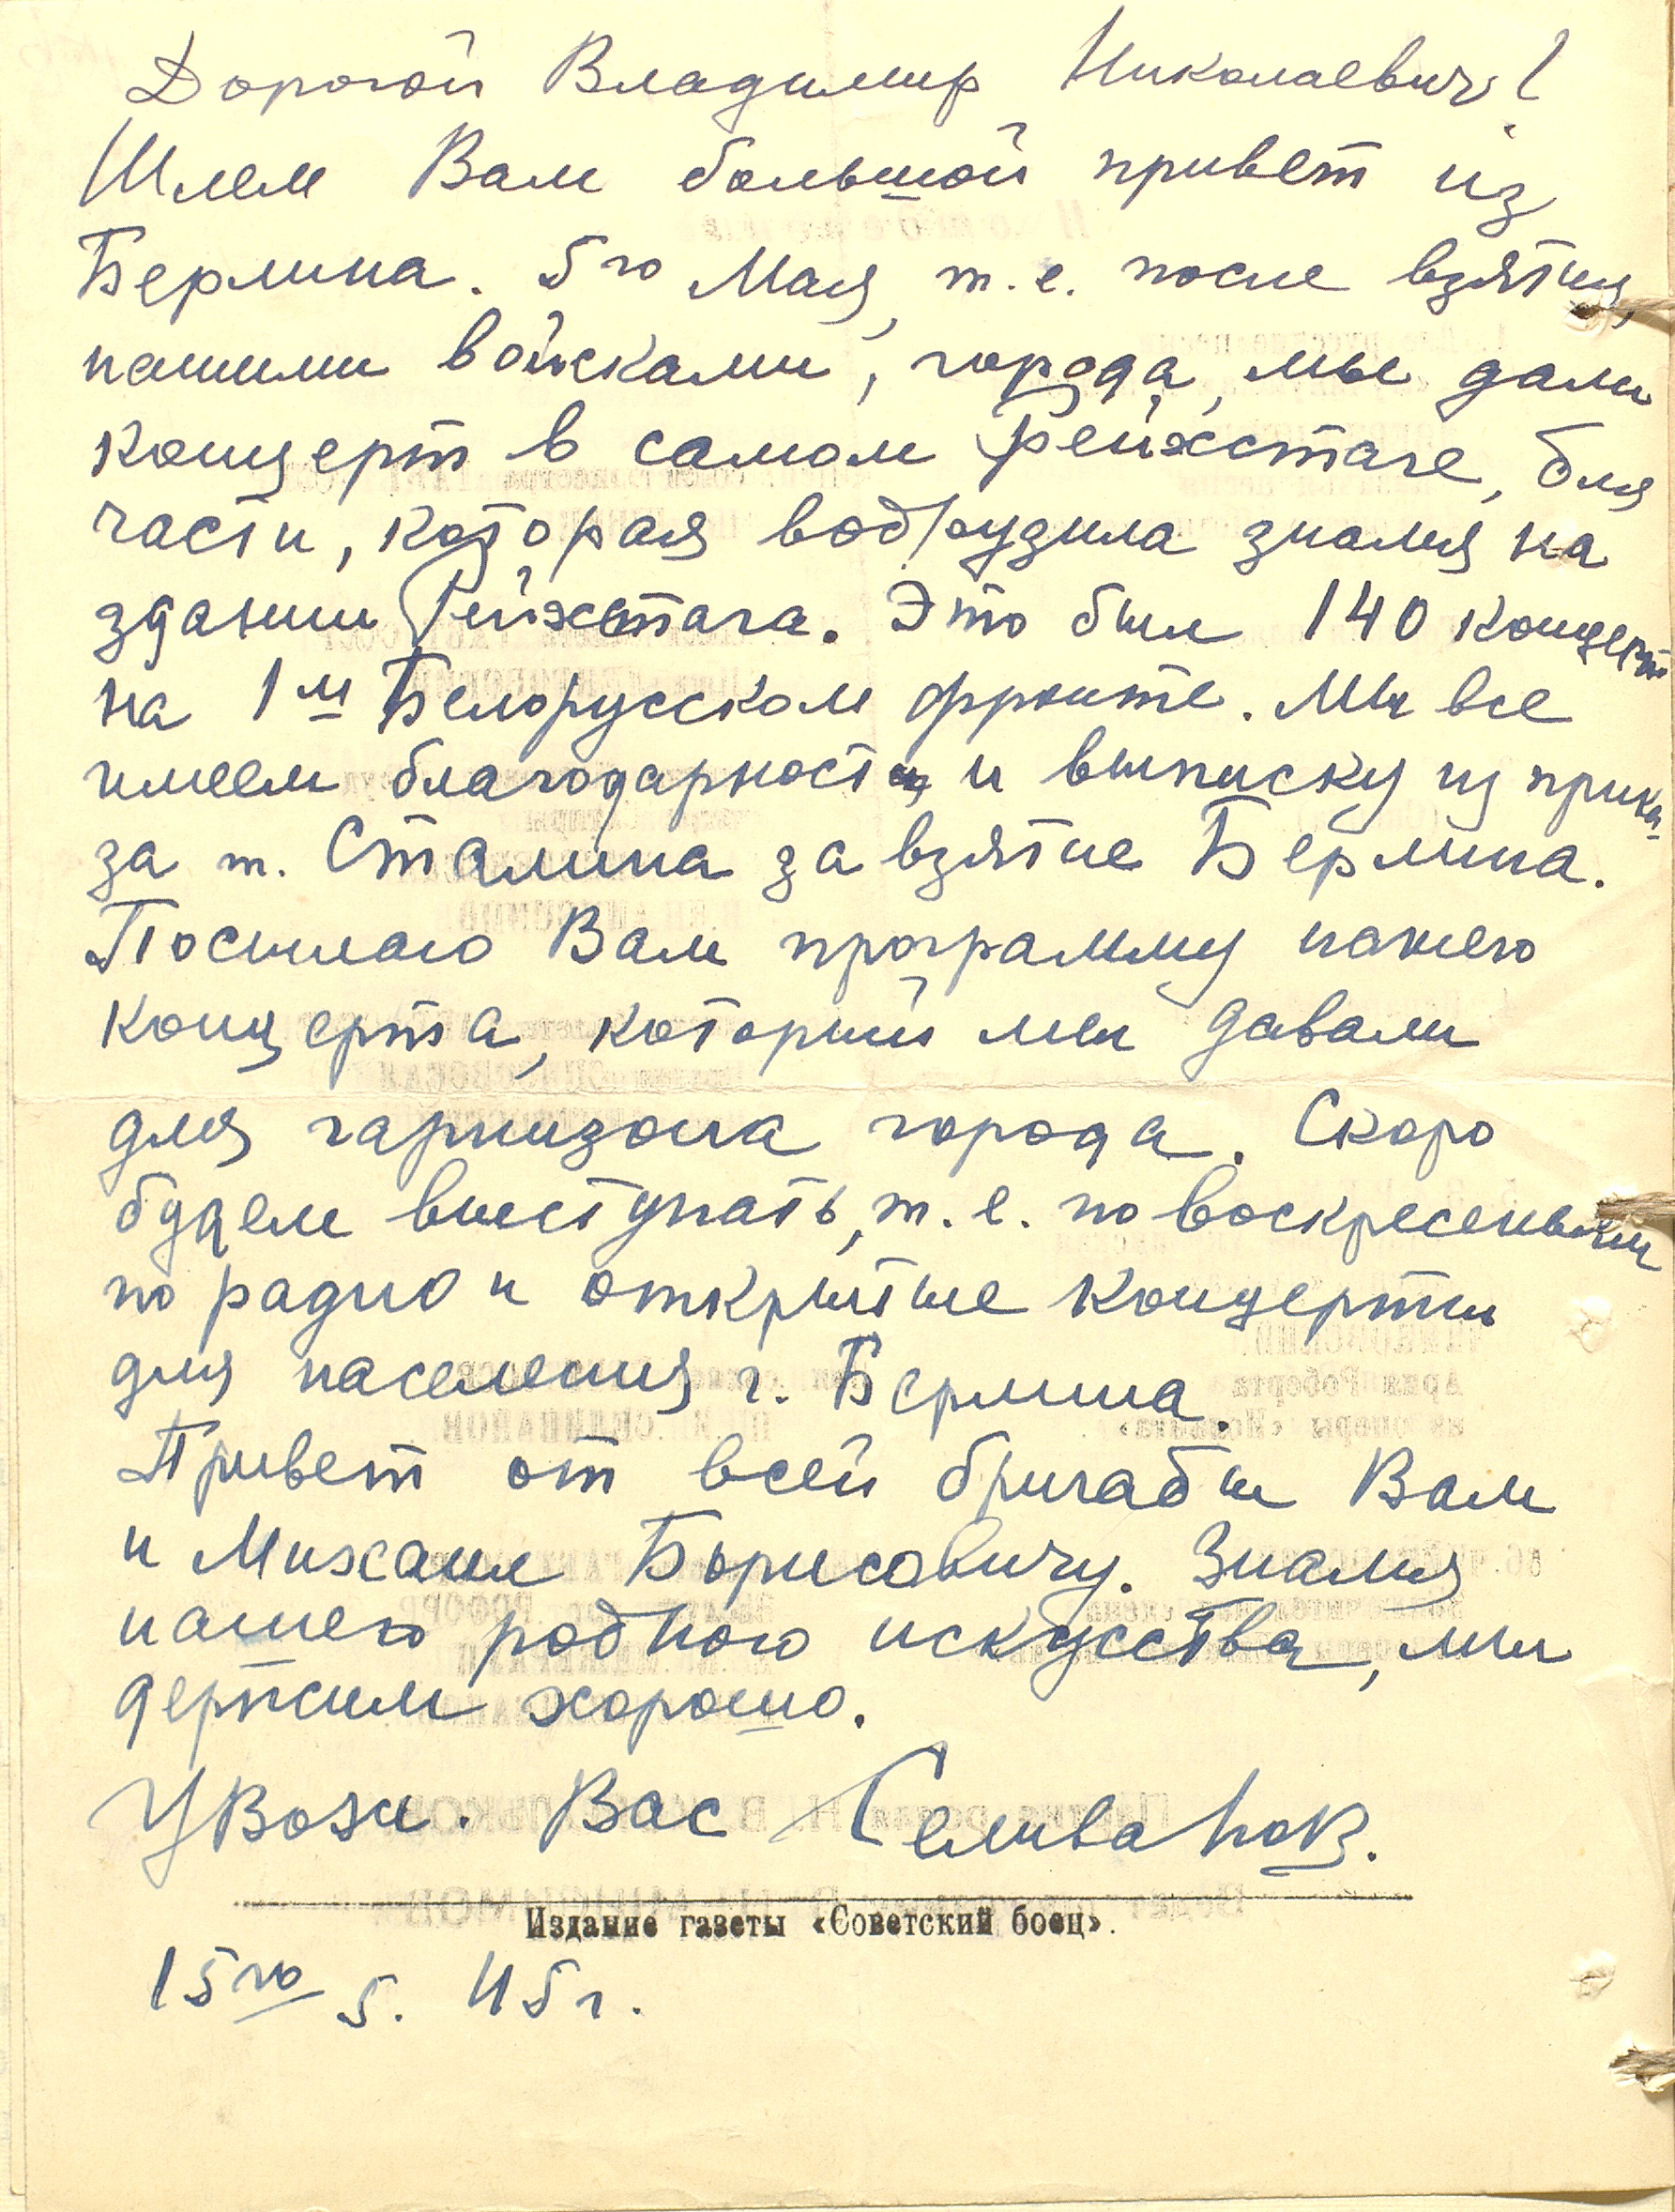 Дорогой Владимир Николаевич!
Шлем Вам большой привет из
Берлина. 5го Мая, т.е. после взятия,
нашими войсками, города, мы дали
концерт в самом Рейхстаге, для
части, которая водрузила знамя на
здании Рейхстага. Это был 140 концерт
на 1м Белорусском фронте. Мы все
имеем благодарность и выписку из прика-
за т. Сталина за взятие Берлина.
Посылаю Вам программу нашего
концерта, который мы давали
для гарнизона города. Скоро
будем выступать, т.е. по воскресеньям
по радио и открытые концерты
для населения г. Берлина.
Привет от всей бригады Вам
и Михаил Борисовичу. Знамя
нашего родного искусства, мы
держим хорошо.
Уважи. Вас Селиванов.
Издание газеты «Советский боец».
15го 5. 45г.